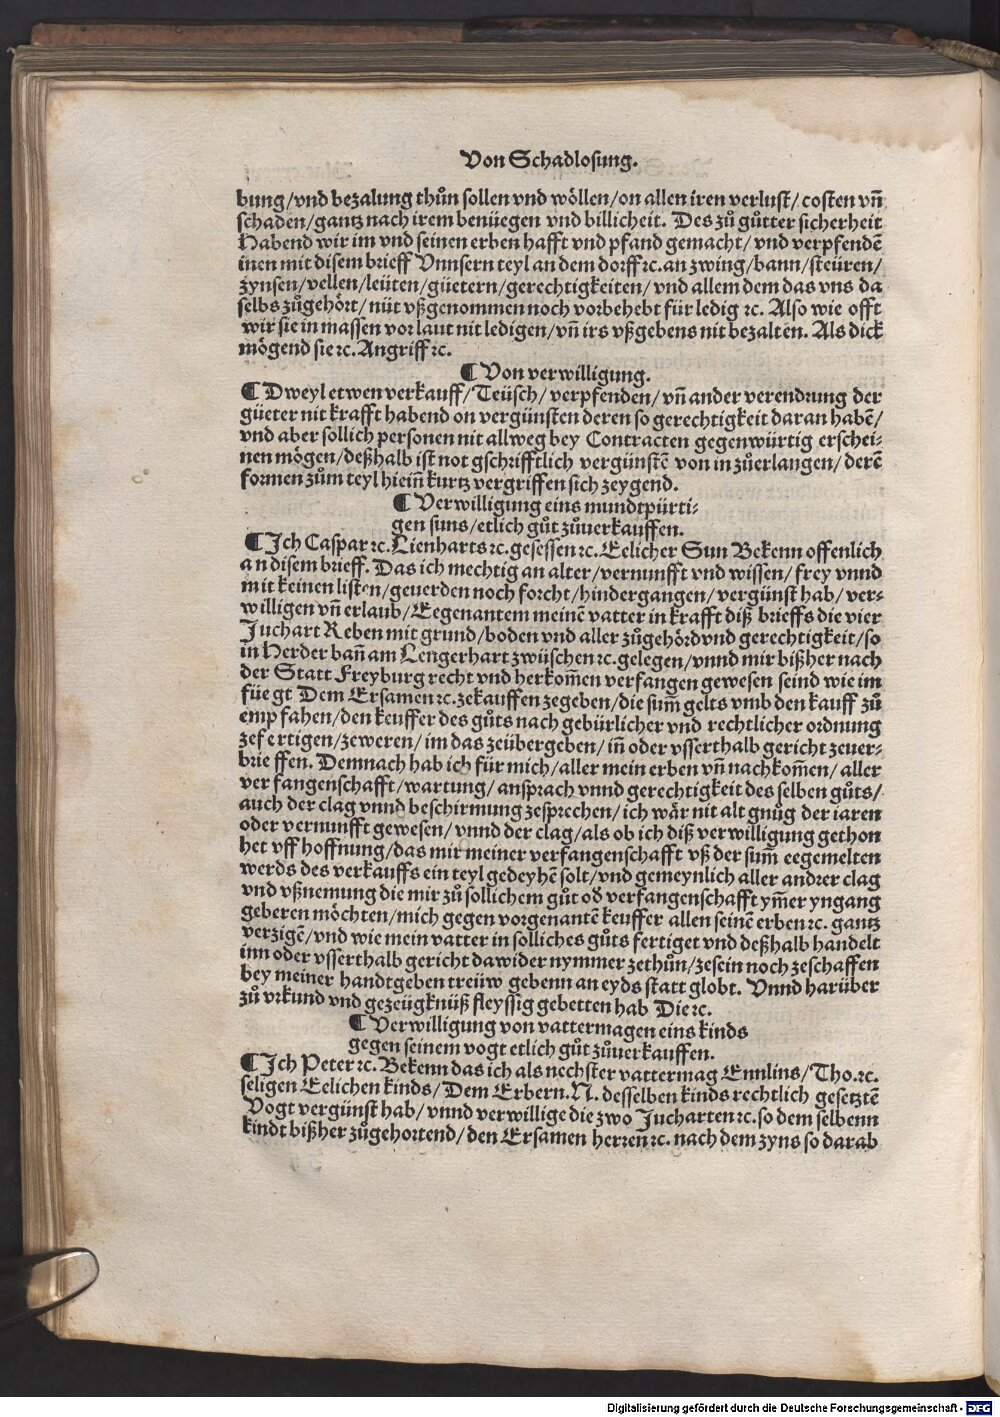 Von Schadlosung.
bung/vnd bezalung thůn sollen vnd wöllen/on allen iren verlust/costen vn̄
schaden/gantz nach irem benüegen vnd billicheit. Des zů gůtter sicherheit
Habend wir im vnd seinen erben hafft vnd pfand gemacht/vnd verpfendē
inen mit disem brieff Vnnsern teyl an dem dorff ⁊c. an zwing/bann/steüren/
zynsen/vellen/leüten/güetern/gerechtigkeiten/vnd allem dem das vns da
selbs zůgehört/nüt vßgenommen noch vorbehebt für ledig ⁊c. Also wie offt
wir sie in massen vor laut nit ledigen/vn̄ irs vßgebens nit bezalten. Als dick
mögend sie ⁊c. Angriff ⁊c.
¶ Von verwilligung.
¶ Dweyl etwen verkauff/Teüsch/verpfenden/vn̄ ander verendꝛung der
güeter nit krafft habend on vergünsten deren so gerechtigkeit daran habē/
vnd aber sollich personen nit allweg bey Contracten gegenwürtig erschei-
nen mögen/deßhalb ist not gschrifftlich vergünstē von in zůerlangen/derē
formen zům teyl hiein̄ kurtz vergriffen sich zeygend.
¶ Verwilligung eins mundtpürti-
gen suns/etlich gůt zůuerkauffen.
¶ Ich Caspar ⁊c. Lienharts ⁊c. gesessen ⁊c. Eelicher Sun Bekenn offenlich
an disem brieff. Das ich mechtig an alter/vernunfft vnd wissen/frey vnnd
mit keinen listen/geuerden noch forcht/hindergangen/vergünst hab/ver-
willigen vn̄ erlaub/Eegenantem meinē vatter in krafft diß brieffs die vier
Juchart Reben mit grund/boden vnd aller zůgehörd vnd gerechtigkeit/so
in Herder ban̄ am Lengerhart zwüschen ⁊c. gelegen/vnnd mir bißher nach
der Statt Freyburg recht vnd herkom̄en verfangen gewesen seind wie im
füegt Dem Ersamen ⁊c. zekauffen zegeben/die sum̄ gelts vmb den kauff zů
empfahen/den keuffer des gůts nach gebürlicher vnd rechtlicher ordnung
zefertigen/zeweren/im das zeübergeben/in̄ oder vsserthalb gericht zeuer-
brieffen. Demnach hab ich für mich/aller mein erben vn̄ nachkom̄en/aller
verfangenschafft/wartung/ansprach vnnd gerechtigkeit des selben gůts/
auch der clag vnnd beschirmung zesprechen/ich wär nit alt gnůg der iaren
oder vernunfft gewesen/vnnd der clag/als ob ich diß verwilligung gethon
het vff hoffnung/das mir meiner verfangenschafft vß der sum̄ eegemelten
werds des verkauffs ein teyl gedeyhē solt/vnd gemeynlich aller andꝛer clag
vnd vßnemung die mir zů sollichem gůt od̄ verfangenschafft ym̄er yngang
geberen möchten/mich gegen vorgenantē keuffer allen seinē erben ⁊c. gantz
verzigē/vnd wie mein vatter in solliches gůts fertiget vnd deßhalb handelt
inn oder vsserthalb gericht dawider nymmer zethůn/zesein noch zeschaffen
bey meiner handtgeben treüw gebenn an eyds statt globt. Vnnd harüber
zů vrkund vnd gezeügknüß fleyssig gebetten hab Die ⁊c.
¶ Verwilligung von vattermagen eins kinds
gegen seinem vogt etlich gůt zůuerkauffen.
¶ Ich Peter ⁊c. Bekenn das ich als nechster vattermag Ennlins/Tho. ⁊c.
seligen Eelichen kinds/Dem Erbern. N. desselben kinds rechtlich gesetztē
Vogt vergünst hab/vnnd verwillige die zwo Jucharten ⁊c. so dem selbenn
kindt bißher zůgehortend/den Ersamen herren ⁊c. nach dem zyns so darab
Digitalisierung gefördert durch die Deutsche Forschungsgemeinschaft - DFG